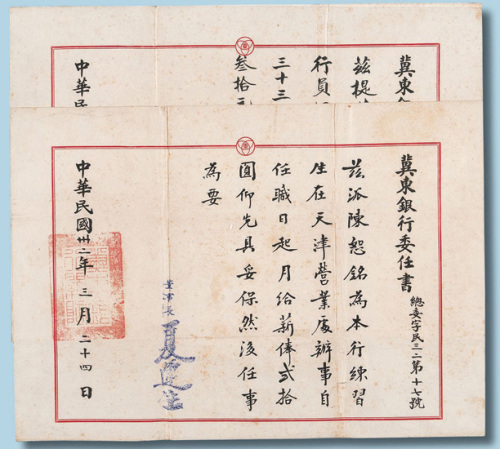 冀東銀行委任書
總委字民三二第十七號
茲派陳恕銘為本行練習
生在天津營業處辦事自
任職日起月給薪俸貳拾
圓仰先具妥保然後任事
為要
董事長
中華民國卅二年三月二十四日
冀東銀
茲提
行員
三十三
叁拾元
中華民